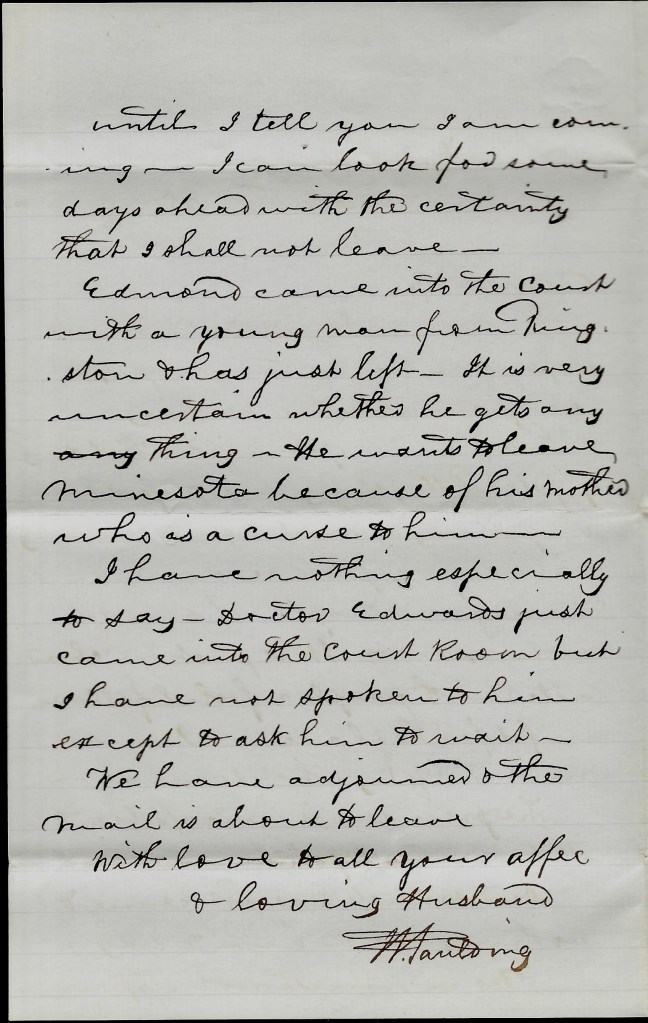 until I tell you I am com-
ing — I can look for some
days ahead with the certainty
that I shall not leave —
Edmond came into the Court
with a young man from King-
ston & has just left — It is very
uncertain whether he gets any
any thing — He wants to leave
Minesota because of his mother
who is a curse to him —
I have nothing especially
to say — Doctor Edwards just
came into the Court Room but
I have not spoken to him
except to ask him to wait —
We have adjourned & the
mail is about to leave
With love to all your affec
& loving Husband
W. Paulding